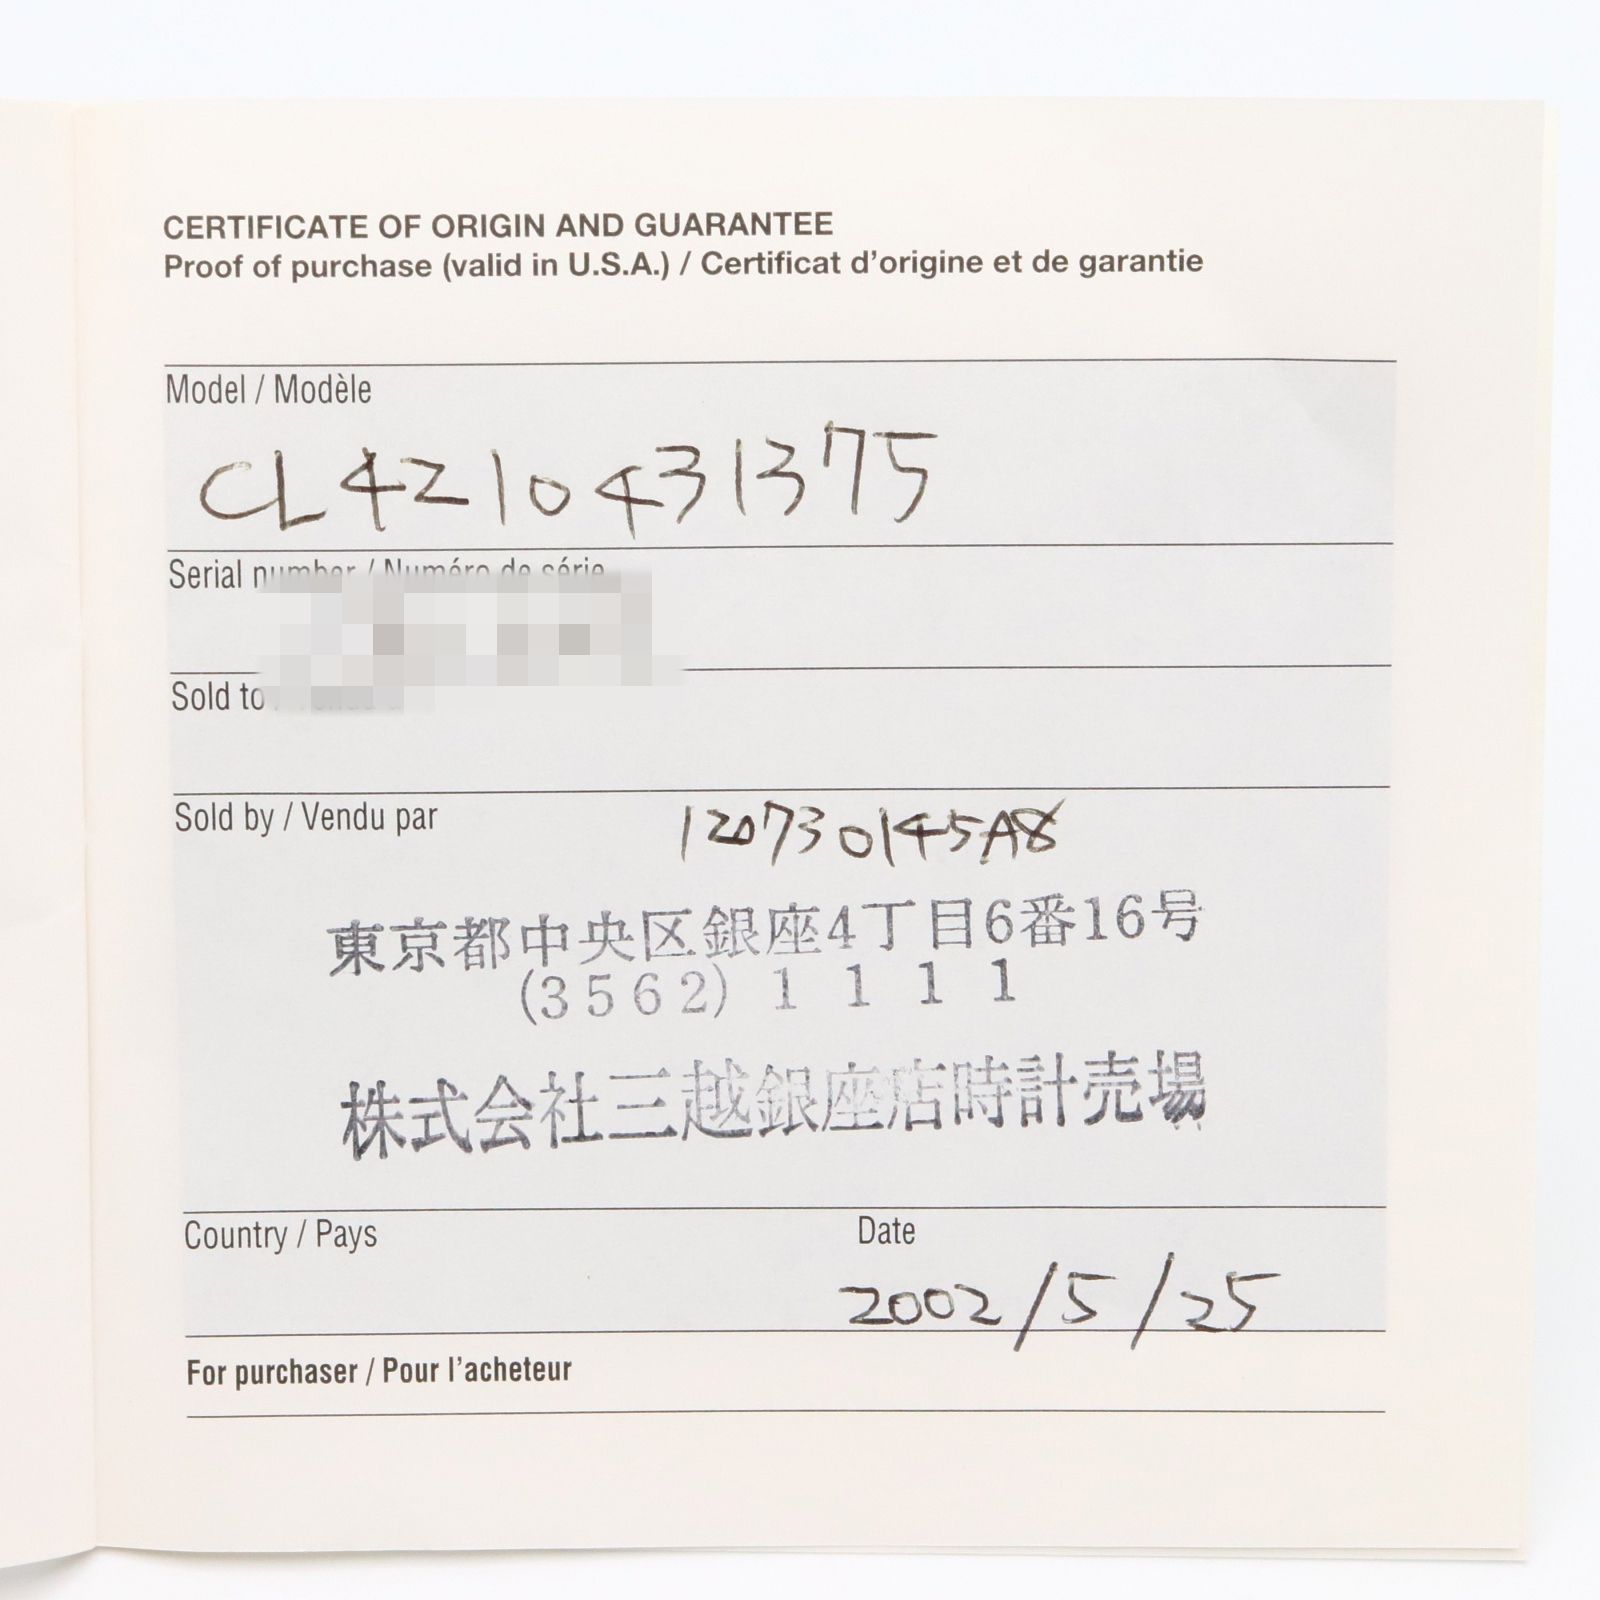 CERTIFICATE OF ORIGIN AND GUARANTEE
Proof of purchase (valid in U.S.A.) / Certificat d'origine et de garantie
Model / Modèle
CL4210431375
Serial number / Numéro de série
Sold to
Sold by / Vendu par
120730145A8
東京都中央区銀座4丁目6番16号
(3562) 1111
株式会社三越銀座店時計売場
Country / Pays
Date
2002/5/25
For purchaser / Pour l'acheteur